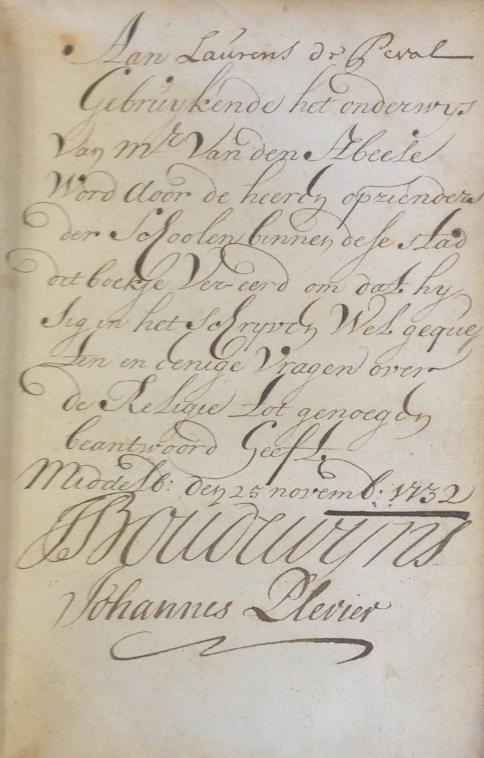 Aan Laurens de Peval
Gebruykende het onderwys
Van Mr Van den Abeele
Word door de heeren opzienders
der Schoolen binnen dese stad
dit boekje Ver-eerd om dat hy
sig in het schryven Wel gequee
ten en eenige Vragen over
de Religie tot genoegen
beantwoord Heeft.
Middelb: den 25 novemb: 1732
Boudewyns
Johannes Plevier